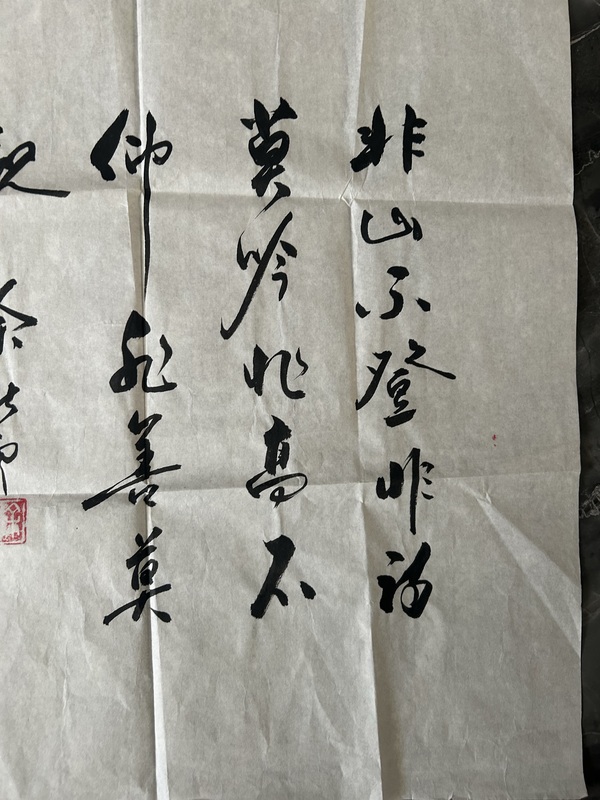 非山不登非诗
莫吟非高不
仰非善莫